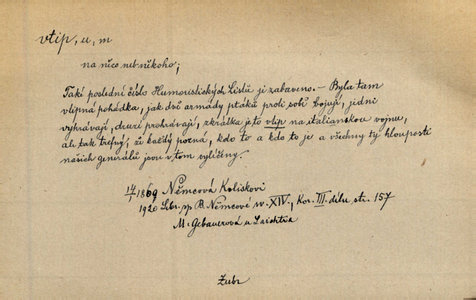 vtip, u, m
na něco neb někoho;
Také poslední číslo Humoristických Listů je zabaveno. – Byla tam
vtipná pohádka, jak dvě armády ptáků proti sobě bojují, jedni
vyhrávají, druzí prohrávají, zkrátka je to vtip na italianskou vojnu,
ale tak trefný, že každý pozná, kdo to a kdo to je a všechny ty hlouposti
našich generálů jsou v tom vylíčeny.
14/1 1869 Němcová Koliskovi
1920 Sebr. sp. B. Němcové sv. XIV, Kor. III. dílu str. 157
M. Gebauerová u Laichtra
Zubr